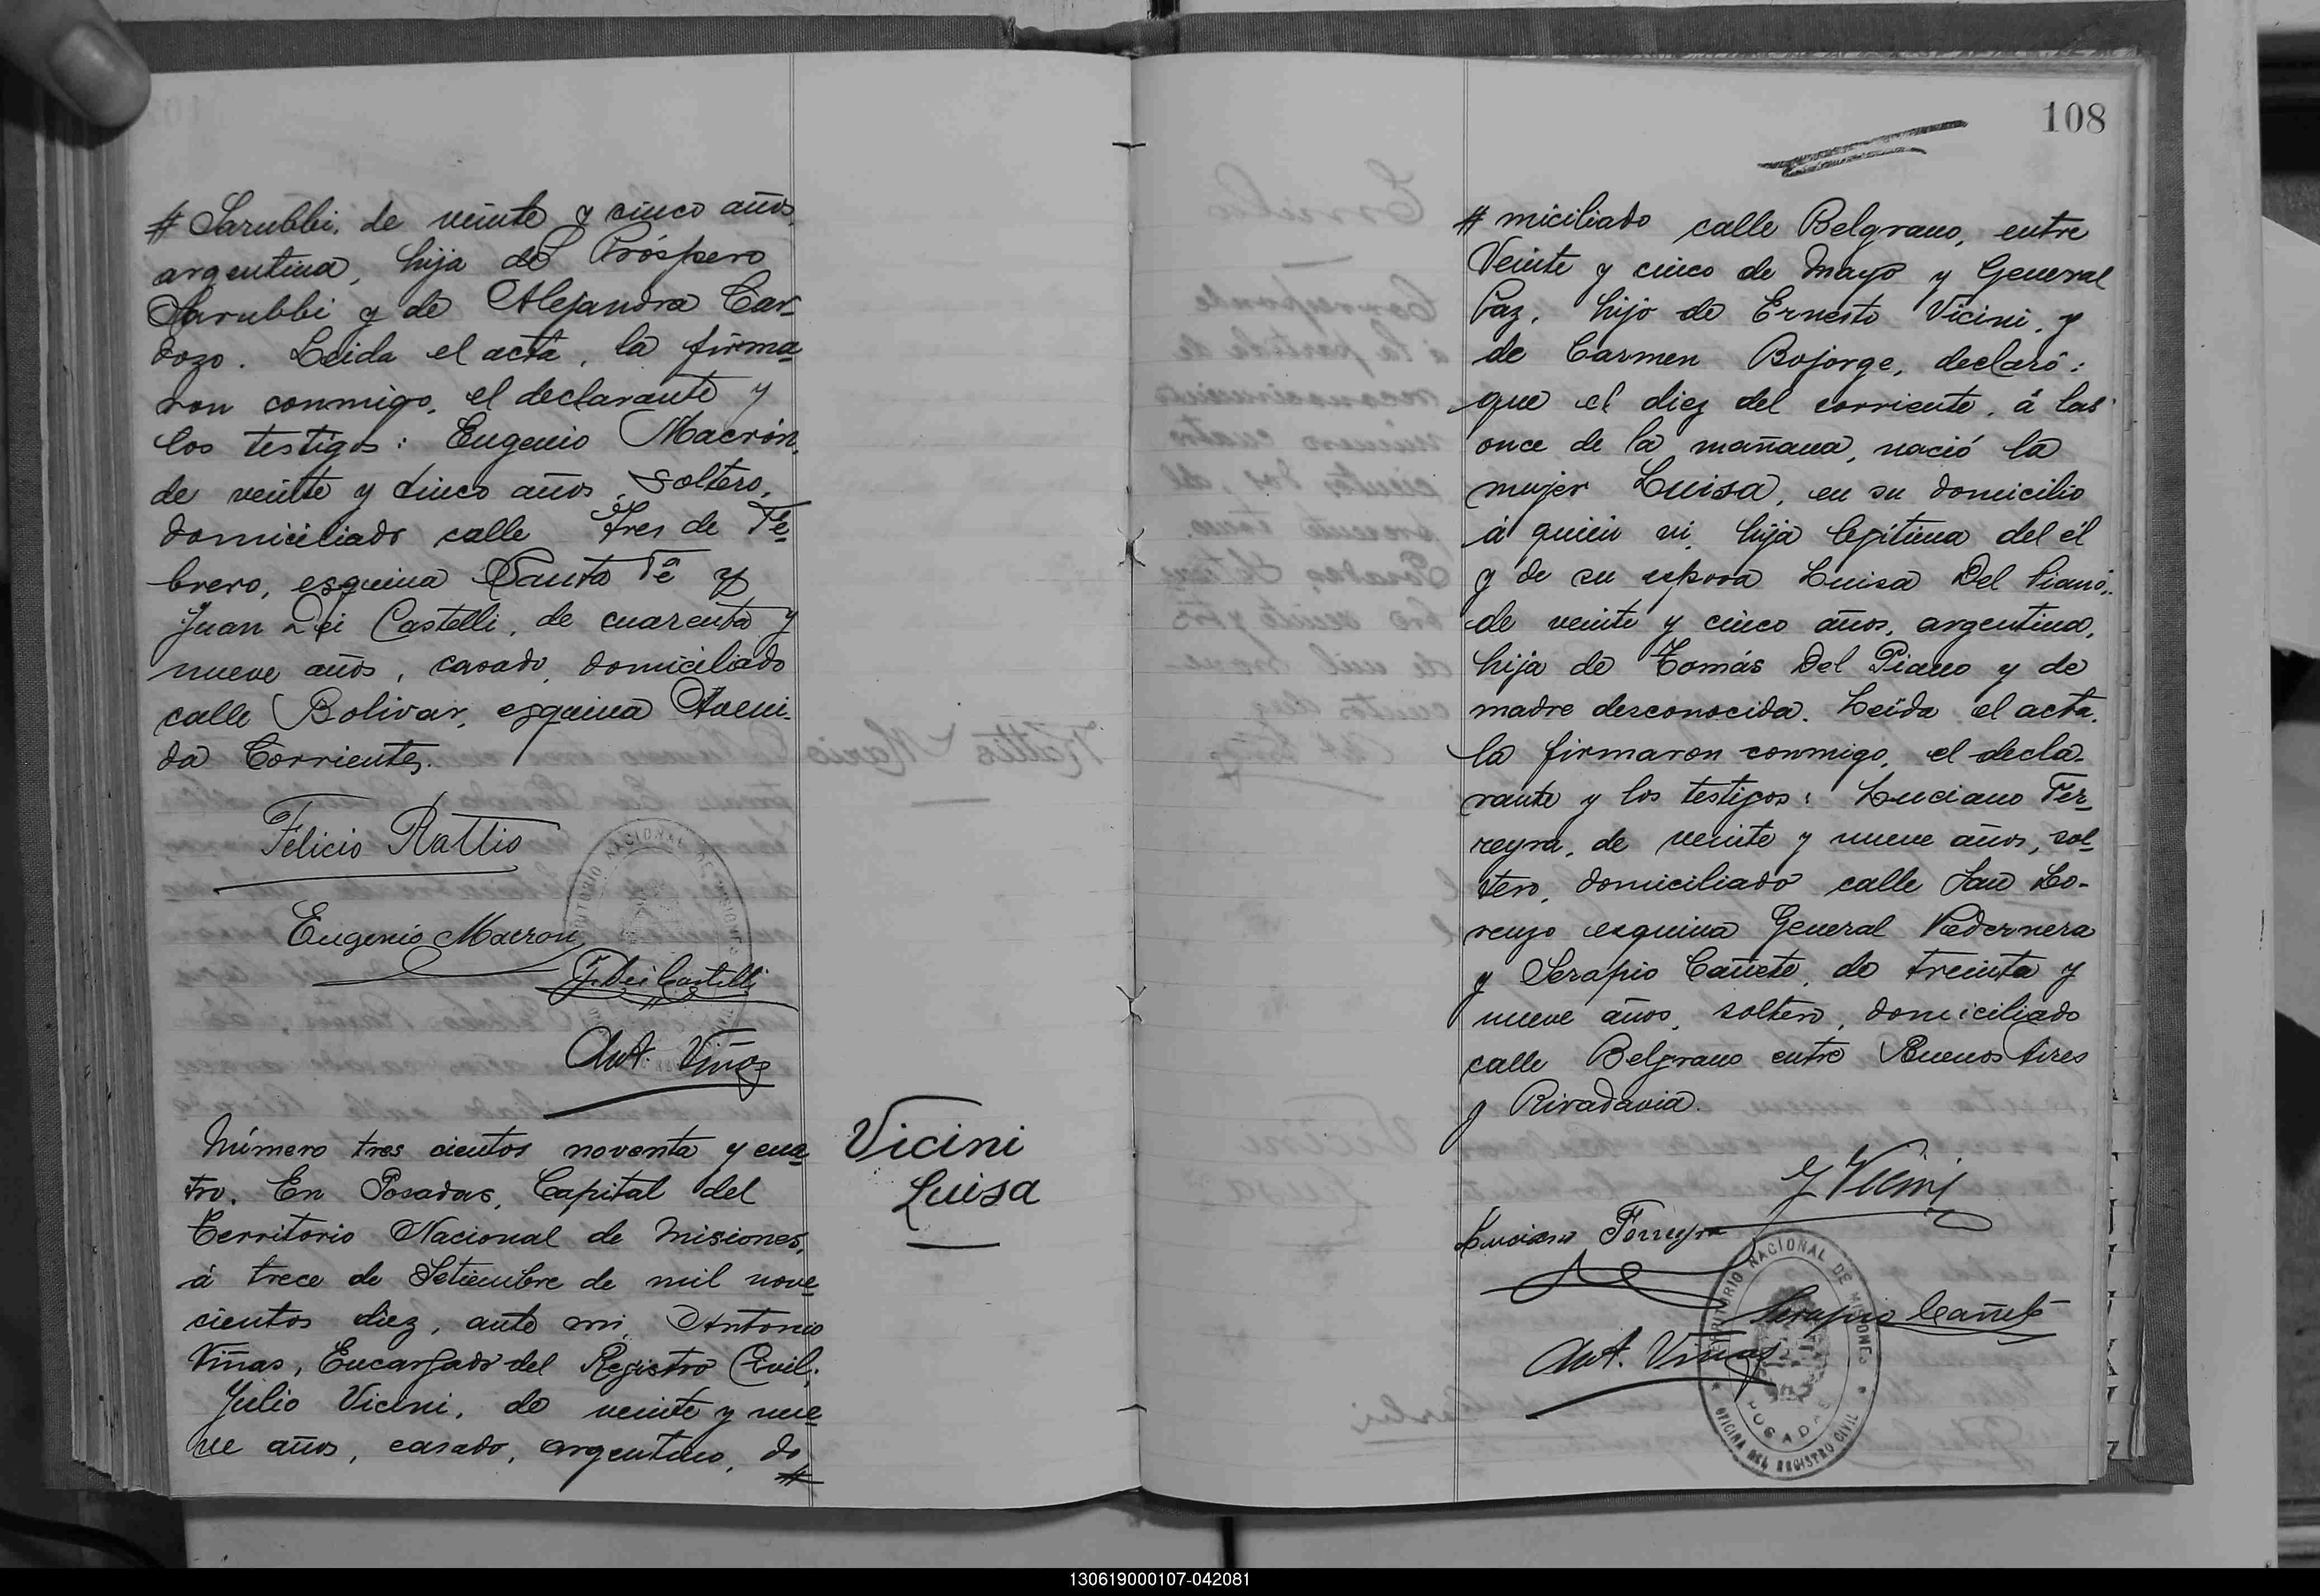 # Sarubbi, de veinte y cinco años,
argentina, hija de Próspero
Sarubbi y de Alejandra Car-
dozo. Leida el acta, la firma-
ron conmigo, el declarante y
los testigos: Eugenio Macrón,
de veinte y cinco años, soltero,
domiciliado calle Tres de Fe-
brero, esquina Santa Fé y
Juan Dei Castelli, de cuarenta y
nueve años, casado, domiciliado
calle Bolivar, esquina Aveni-
da Corrientes.
Felicio Rattio
Eugenio Macron
J. Dei Castelli
Ant. Viñas
Número tres cientos noventa y cua-
tro. En Posadas, Capital del
Territorio Nacional de Misiones,
á trece de Setiembre de mil nove-
cientos diez, ante mi, Antonio
Viñas, Encargado del Registro Civil;
Julio Vicini, de veinte y nue-
ve años, casado, argentino, do
#
Vicini
Luisa
108
# miciliado calle Belgrano, entre
Veinte y cinco de Mayo y General
Paz, hijo de Ernesto Vicini, y
de Carmen Bojorge, declaró:
que el diez del corriente, á las
once de la mañana, nació la
mujer Luisa, en su domicilio
á quien vi, hija legitima del él
y de su esposa Luisa Del Piano,
de veinte y cinco años, argentina,
hija de Tomás Del Piano y de
madre desconocida. Leida el acta,
la firmaron conmigo, el decla-
rante y los testigos: Luciano Fer-
reyra, de veinte y nueve años, sol-
tero, domiciliado calle San Lo-
renzo esquina General Pedernera
y Serapio Cañete, de treinta y
nueve años, soltero, domiciliado
calle Belgrano entre Buenos Aires
y Rivadavia.
J Vicini
Luciano Ferreyra
Serapio Cañete
Ant. Viñas
TERRITORIO NACIONAL DE MISIONES
POSADAS
OFICINA DEL REGISTRO CIVIL
130619000107-042081